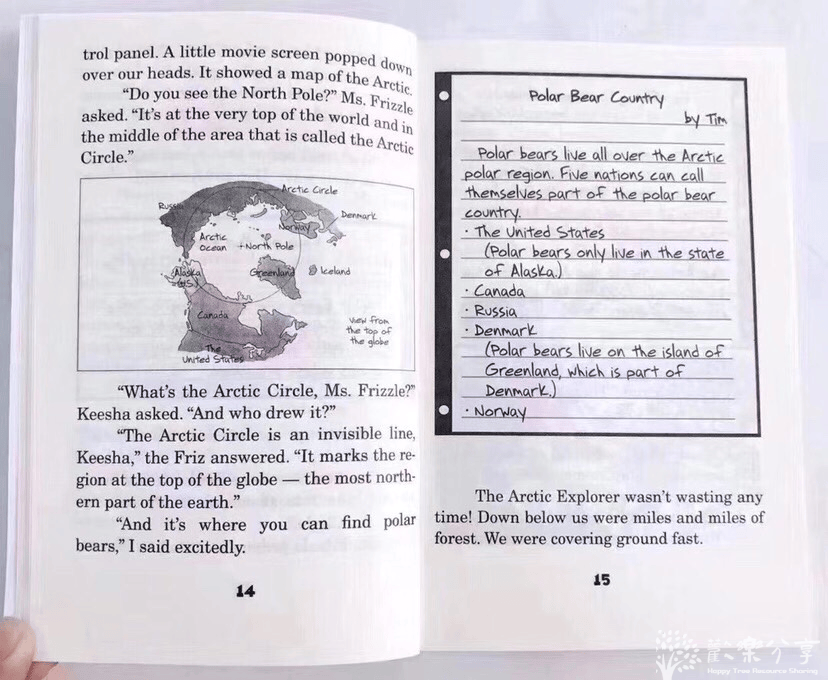 trol panel. A little movie screen popped down
over our heads. It showed a map of the Arctic.
"Do you see the North Pole?" Ms. Frizzle
asked. "It's at the very top of the world and in
the middle of the area that is called the Arctic
Circle."
Arctic Circle
Russia
Denmark
Norway
Arctic
Ocean
+North Pole
Alaska
(U.S.)
Greenland
Iceland
Canada
View from
the top of
the globe
The
United States
"What's the Arctic Circle, Ms. Frizzle?"
Keesha asked. "And who drew it?"
"The Arctic Circle is an invisible line,
Keesha," the Friz answered. "It marks the re-
gion at the top of the globe — the most north-
ern part of the earth."
"And it's where you can find polar
bears," I said excitedly.
14
Polar Bear Country
by Tim
Polar bears live all over the Arctic
polar region. Five nations can call
themselves part of the polar bear
country.
· The United States
(Polar bears only live in the state
of Alaska.)
· Canada
· Russia
· Denmark
(Polar bears live on the island of
Greenland, which is part of
Denmark.)
· Norway
The Arctic Explorer wasn't wasting any
time! Down below us were miles and miles of
forest. We were covering ground fast.
15
歡樂分享
Happy Tree Resource Sharing